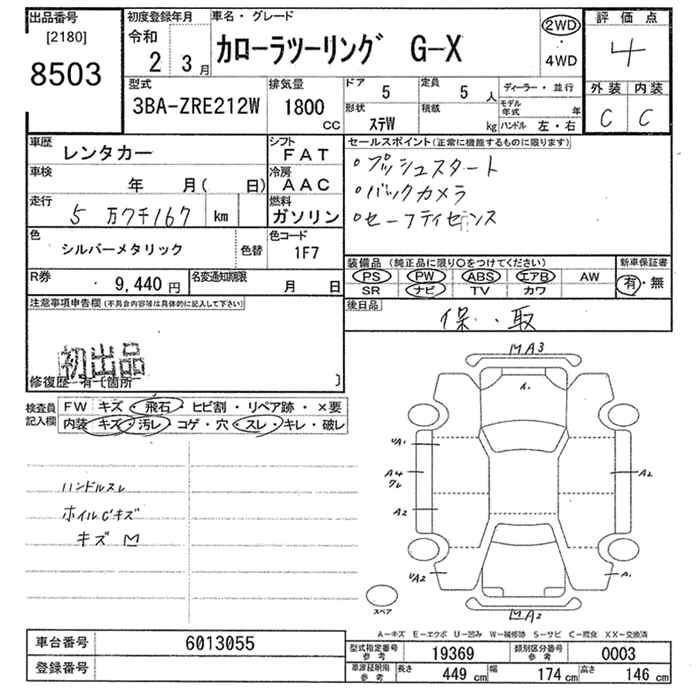 出品番号
[2180]
8503
初度登録年月
令和
2 3月
車名・グレード
カローラツーリング G-X
2WD
・
4WD
評価点
4
型式
3BA-ZRE212W
排気量
1800
cc
ドア 5
定員 5 人
形状 ステW
積載 kg
ディーラー・並行
モデル年式 年
ハンドル 左・右
外装 内装
C C
車歴 レンタカー
シフト FAT
車検 年 月( 日)
冷房 AAC
走行 5万7千167 km
燃料 ガソリン
色 シルバーメタリック 色替
色コード 1F7
R券 9,440 円
名変通知期限 月 日
セールスポイント(正常に機能するものに限ります)
・プッシュスタート
・バックカメラ
・セーフティセンス
装備品(純正品に限り○をつけてください)
PS PW ABS エアB AW
SR ナビ TV カワ
新車保証書
有・無
後日品
保・取
注意事項申告欄(不具合内容等は具体的に記入して下さい)
初出品
修復歴 有 [箇所 ]
検査員記入欄
FW キズ・飛石・ヒビ割・リペア跡・×要
内装 キズ・汚レ・コゲ・穴・スレ・キレ・破レ
ハンドルスレ
ホイルCキズ
キズ M
M A3
A1
A4
A2
A2
A2
A1
M A2
スペア
A-キズ E-エクボ U-凹み W-補修跡 S-サビ C-腐食 XX-交換済
車台番号 6013055
登録番号
型式指定番号 参考 19369
類別区分番号 参考 0003
車庫証明用 参考 長さ 449 cm 幅 174 cm 高さ 146 cm